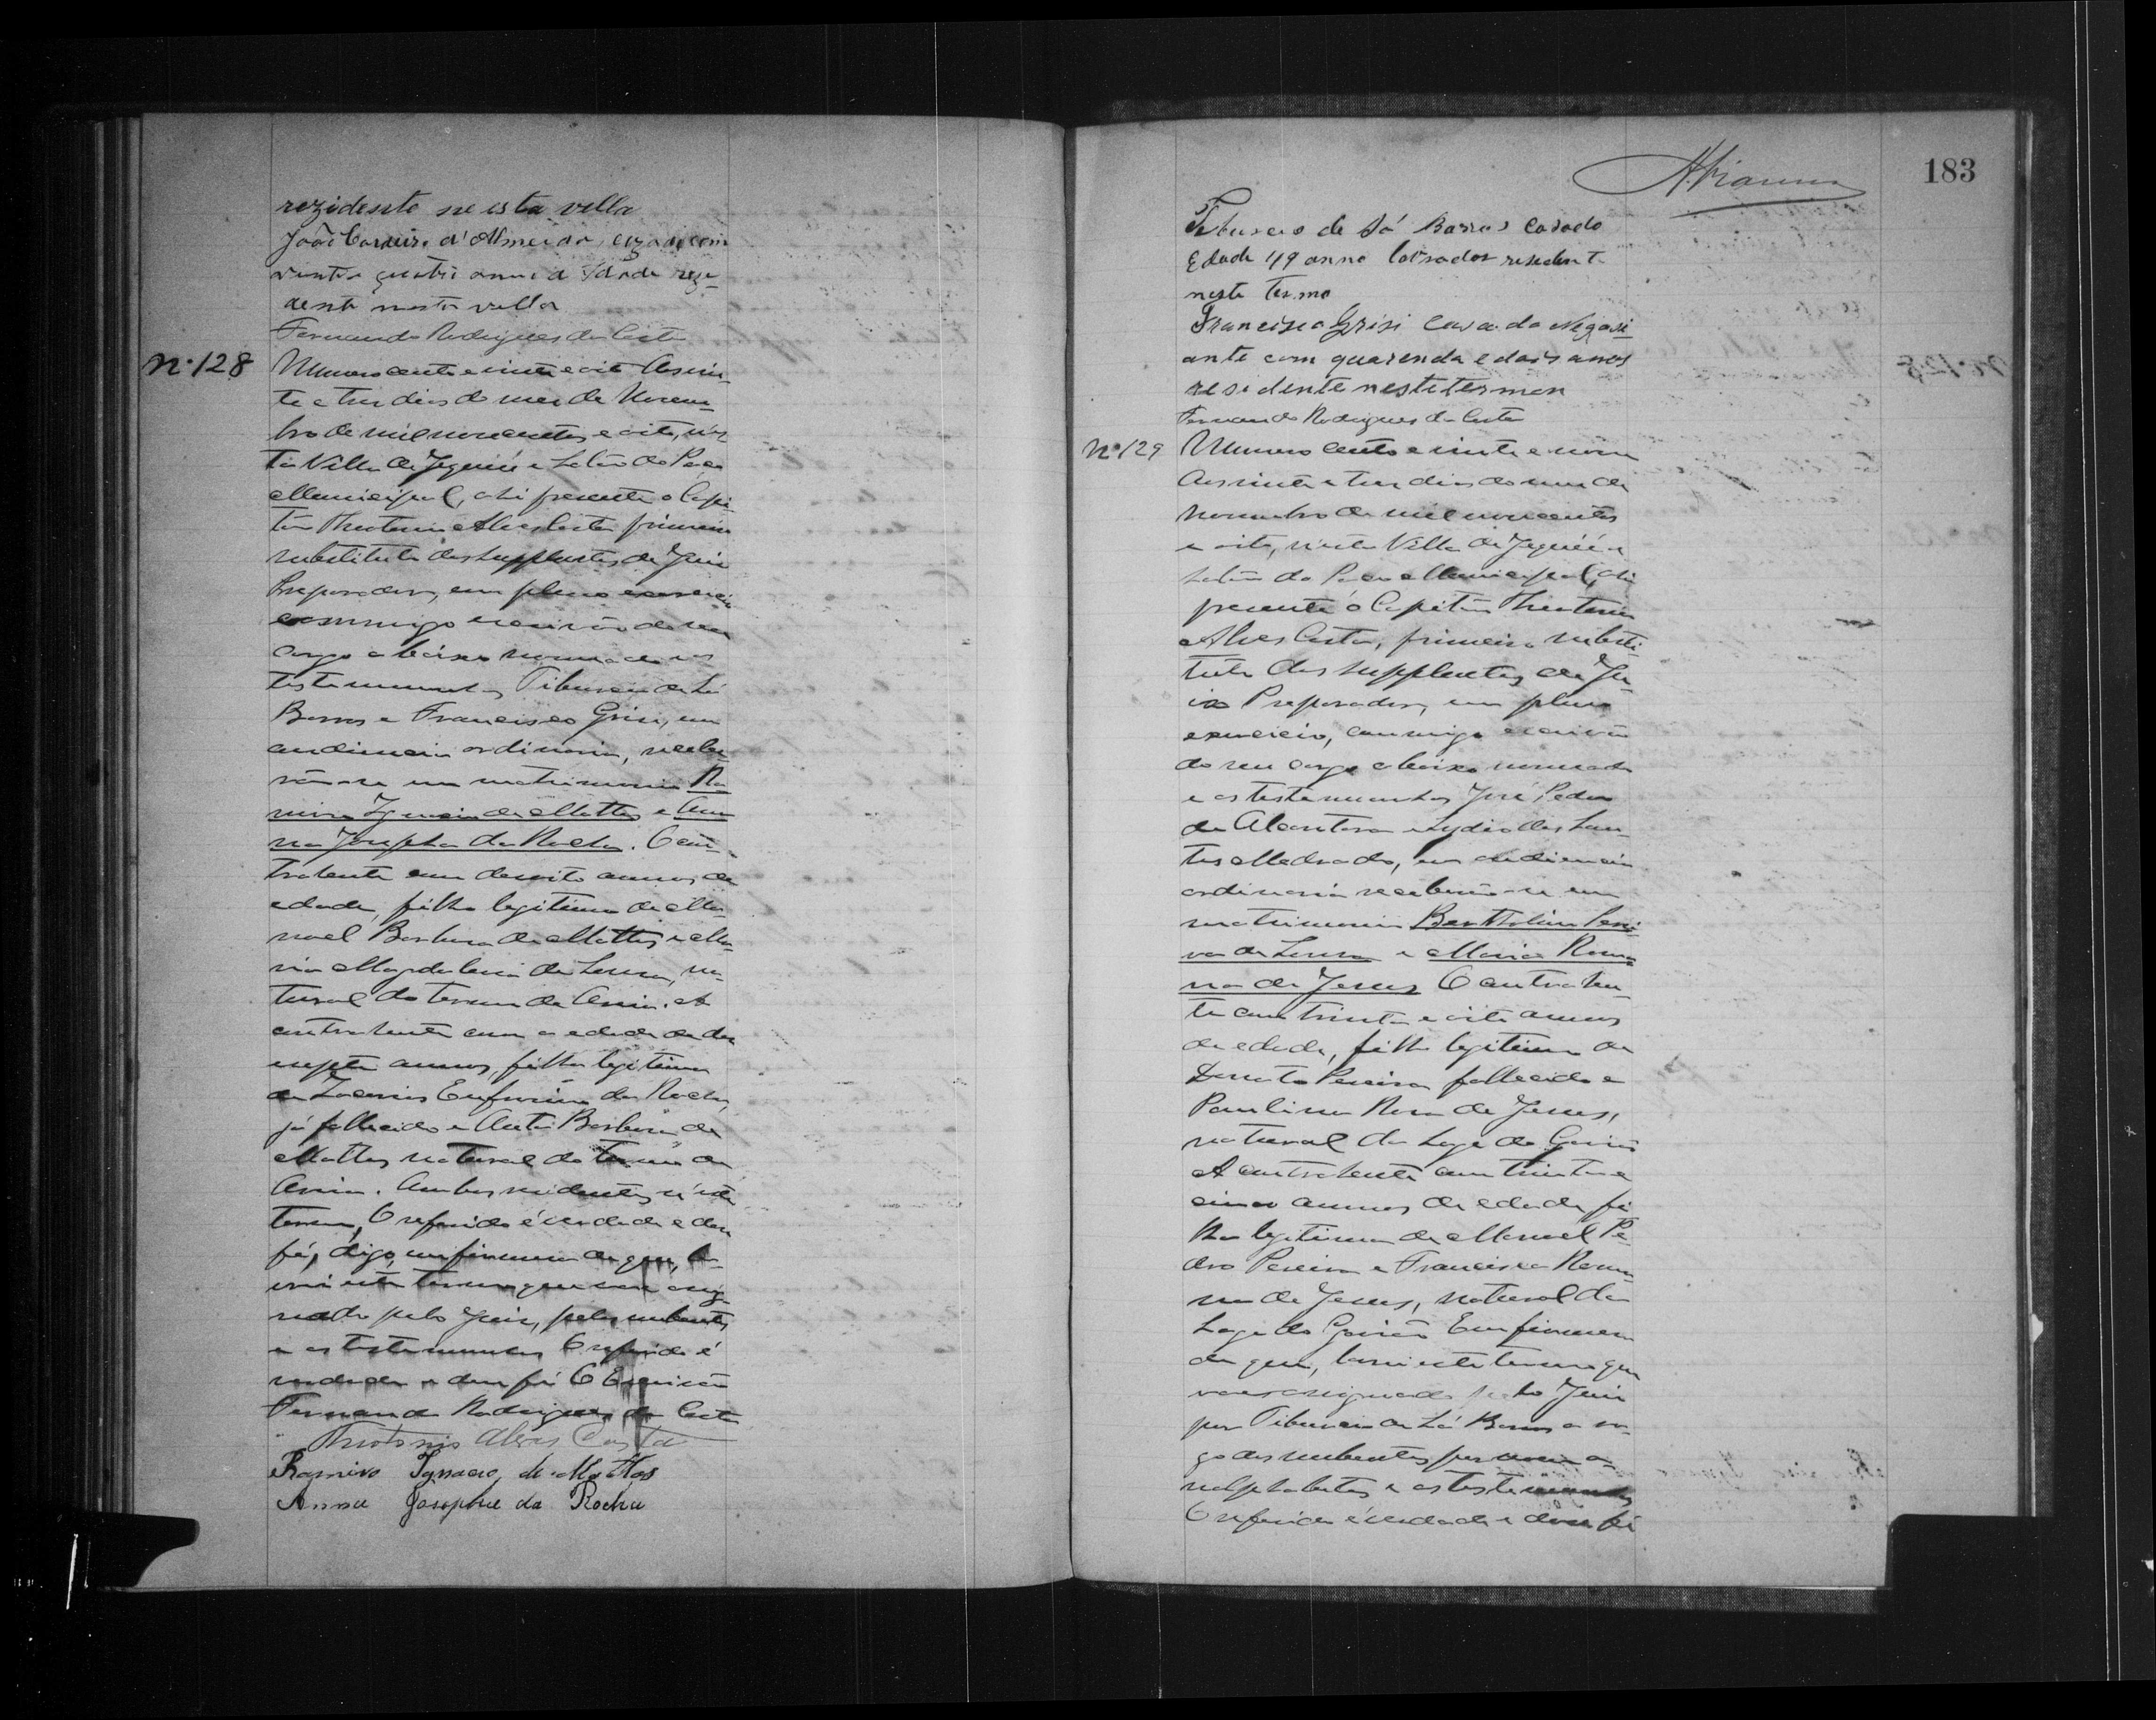 rezidente nesta villa
João Carneiro d'Almeida, cazado com
vinte e quatro annos d'idade rezi-
dente nesta villa
Fernando Rodrigues da Costa
Nº 128
Numero cento e vinte e oito Aos vin-
te e tres dias do mez de Novem-
bro de mil novecentos e oito, n'es-
ta Villa de Jequié e Salão do Paço
Municipal, ahi presente o Capi-
tão Theotonio Alves Costa primeiro
substituto dos supplentes do Juiz
Preparador, em pleno exercicio
commigo escrivão do seu
cargo abaixo nomeado e as
testemunhas Tiburcio de Sá
Barros e Francisco Grisi, em
audiencia ordinaria, recebe-
rão-se em matrimonio Ra-
miro Ignacio de Mattos e Ann-
na Josepha da Rocha. O con-
trahente com desoito annos de
edade, filho legitimo de Ma-
noel Barbosa de Mattos e Ma-
ria Magdalena de Souza, na-
tural do termo de Areia. A
contrahente com a edade de des-
esepte annos, filha legitima
de Eufrasio da Rocha,
já fallecido e Barbosa de
Mattos natural do termo de
Areia. Ambos residentes n'este
termo, O referido é verdade e dou
fé, digo, em firmeza do que, la-
vrei este termo que vai assig-
nado pelo Juiz, pelos nubentes,
e as testemunhas O referido é
verdade e dou fé O Escrivão
Fernando Rodrigues da Costa
Theotonio Alves Costa
Ramiro Ignacio de Mattos
Anna Josepha da Rocha
183
Tiburcio de Sá Barros Casado
Edade 49 anno lavrador resedente
neste termo
Francisco Grisi Casado Negosi-
ante com quarenda e dois annos
residente neste termon
Fernando Rodrigues da Costa
Nº 129
Numero cento e vinte e nove
Aos vinte e tres dias do mez de
Novembro de mil novecentos
e oito, nesta Villa de Jequié e
Salão do Paço Municipal, ahi
presente o Capitão Theotonio
Alves Costa, primeiro substi-
tuto dos supplentes do Ju-
iz Preparador, em pleno
exercicio, commigo escrivão
do seu cargo abaixo nomeado
e as testemunhas José Pedro
de Alcantara e Lydio dos San-
tos Medrado, em audiencia
ordinaria receberão-se em
matrimonio Pere-
de Souza e Maria Roma-
na de Jesus O contrahen-
te com trinta e oito annos
de edade, filho legitimo de
Donato Pereira fallecido e
Paulina Rosa de Jesus,
natural da Lage do
A contrahente com trinta e
cinco annos de edade, fi-
lha legitima de Manoel Pe-
dro Pereira e Francisca Roma-
na de Jesus, natural da
Lage do Em firmeza
do que, lavrei este termo que
vae assignado pelo Juiz
por Tiburcio de Sá Barros a ro-
go dos nubentes por serem a-
nalphabetos e as testemunhas
O referido é verdade e dou fé